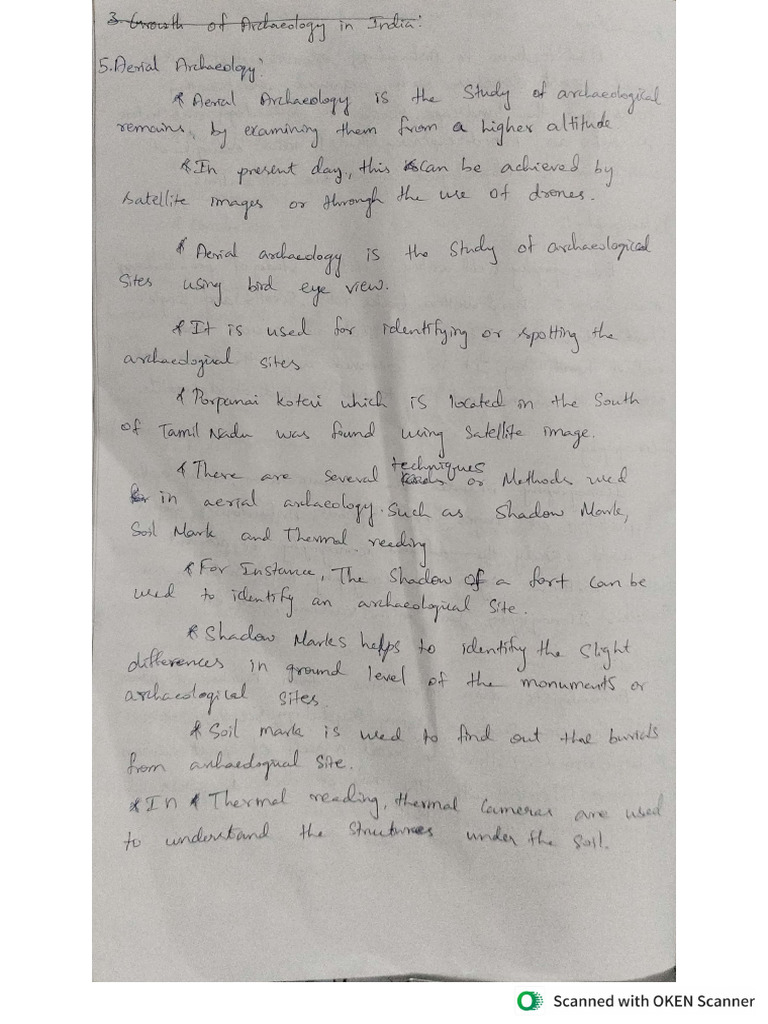 3. Growth of Archaeology in India:
5. Aerial Archaeology:
* Aerial Archaeology is the Study of archaeological
remains, by examining them from a higher altitude
* In present day, this can be achieved by
satellite images or through the use of drones.
* Aerial archaeology is the Study of archaeological
sites using bird eye view.
* It is used for identifying or spotting the
archaeological sites
* Porpanai kotai which is located in the South
of Tamil Nadu was found using Satellite image.
* There are several techniques or Methods used
in aerial archaeology. Such as Shadow Mark,
Soil Mark and Thermal reading
* For Instance, The Shadow of a fort can be
used to identify an archaeological Site.
* Shadow Marks helps to identify the Slight
differences in ground level of the monuments or
archaeological sites.
* Soil mark is used to find out the burials
from archaeological site.
* In Thermal reading, thermal Cameras are used
to understand the structures under the Soil.
Scanned with OKEN Scanner